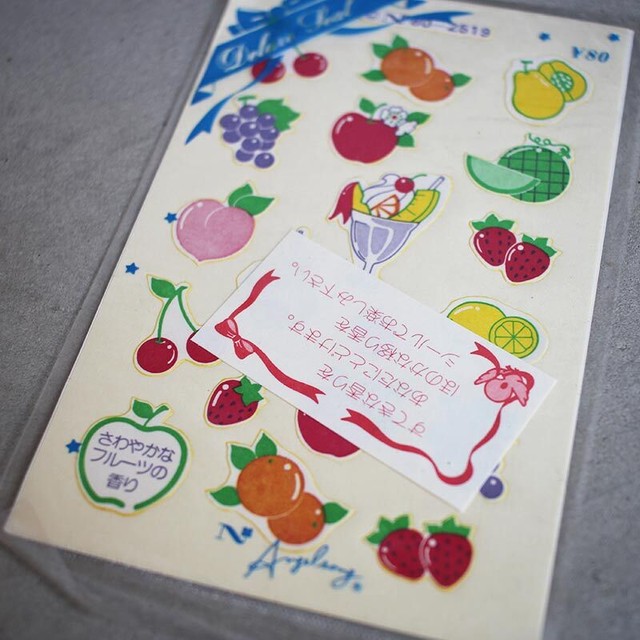 Deluxe Seal
¥80
すてきな香りを
あなたにとどけます。
ほのかな移り香を
シールでお楽しみ下さい。
さわやかな
フルーツの
香り